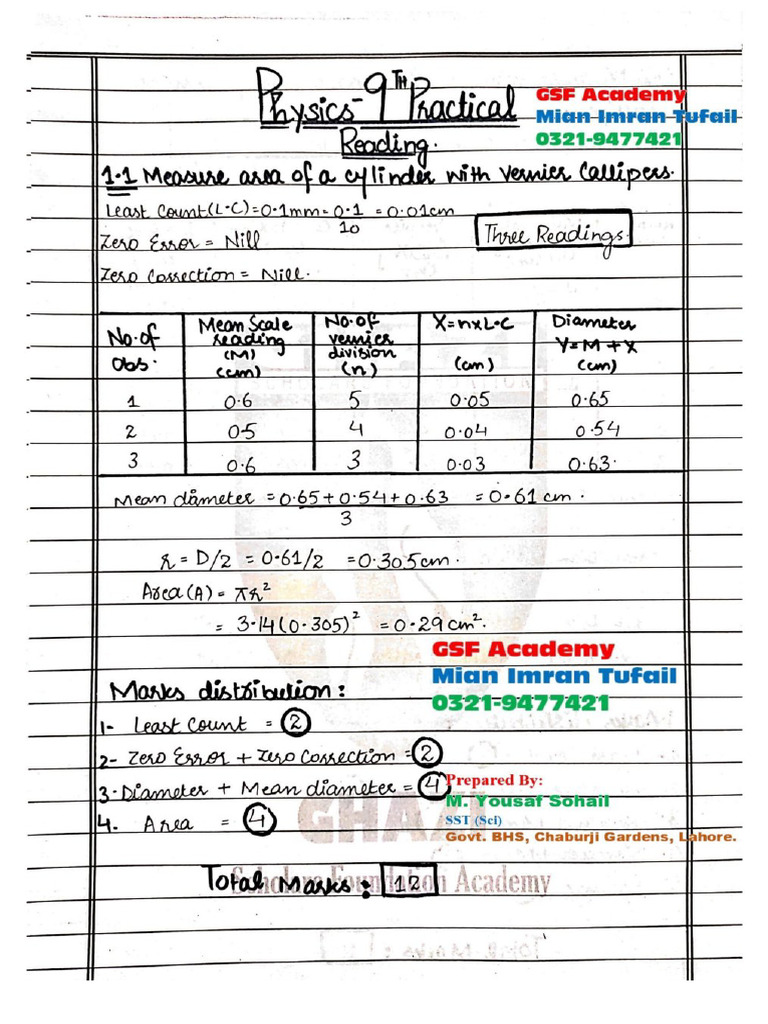 Physics - 9TH Practical
GSF Academy
Mian Imran Tufail
0321-9477421
Reading.
1.1 Measure area of a cylinder with vernier Callipers.
Least Count(L.C)=0.1mm=0.1/10=0.01cm
Zero Error = Nill
Three Readings.
Zero Correction = Nill.
No. of Obs. | Mean Scale reading (M) (cm) | No. of vernier division (n) | X=n×L.C (cm) | Diameter Y=M+X (cm)
1 | 0.6 | 5 | 0.05 | 0.65
2 | 0.5 | 4 | 0.04 | 0.54
3 | 0.6 | 3 | 0.03 | 0.63.
Mean diameter = 0.65+0.54+0.63/3 = 0.61 cm.
r = D/2 = 0.61/2 = 0.305cm.
Area(A) = πr²
= 3.14(0.305)² = 0.29 cm².
GSF Academy
Mian Imran Tufail
0321-9477421
Marks distribution:
1- Least Count = 2
2- Zero Error + Zero Correction = 2
3. Diameter + Mean diameter = 4
Prepared By:
M. Yousaf Sohail
4. Area = 4
SST (Sci)
Govt. BHS, Chaburji Gardens, Lahore.
GHAZI
Scholars Foundation Academy
Total Marks: 12